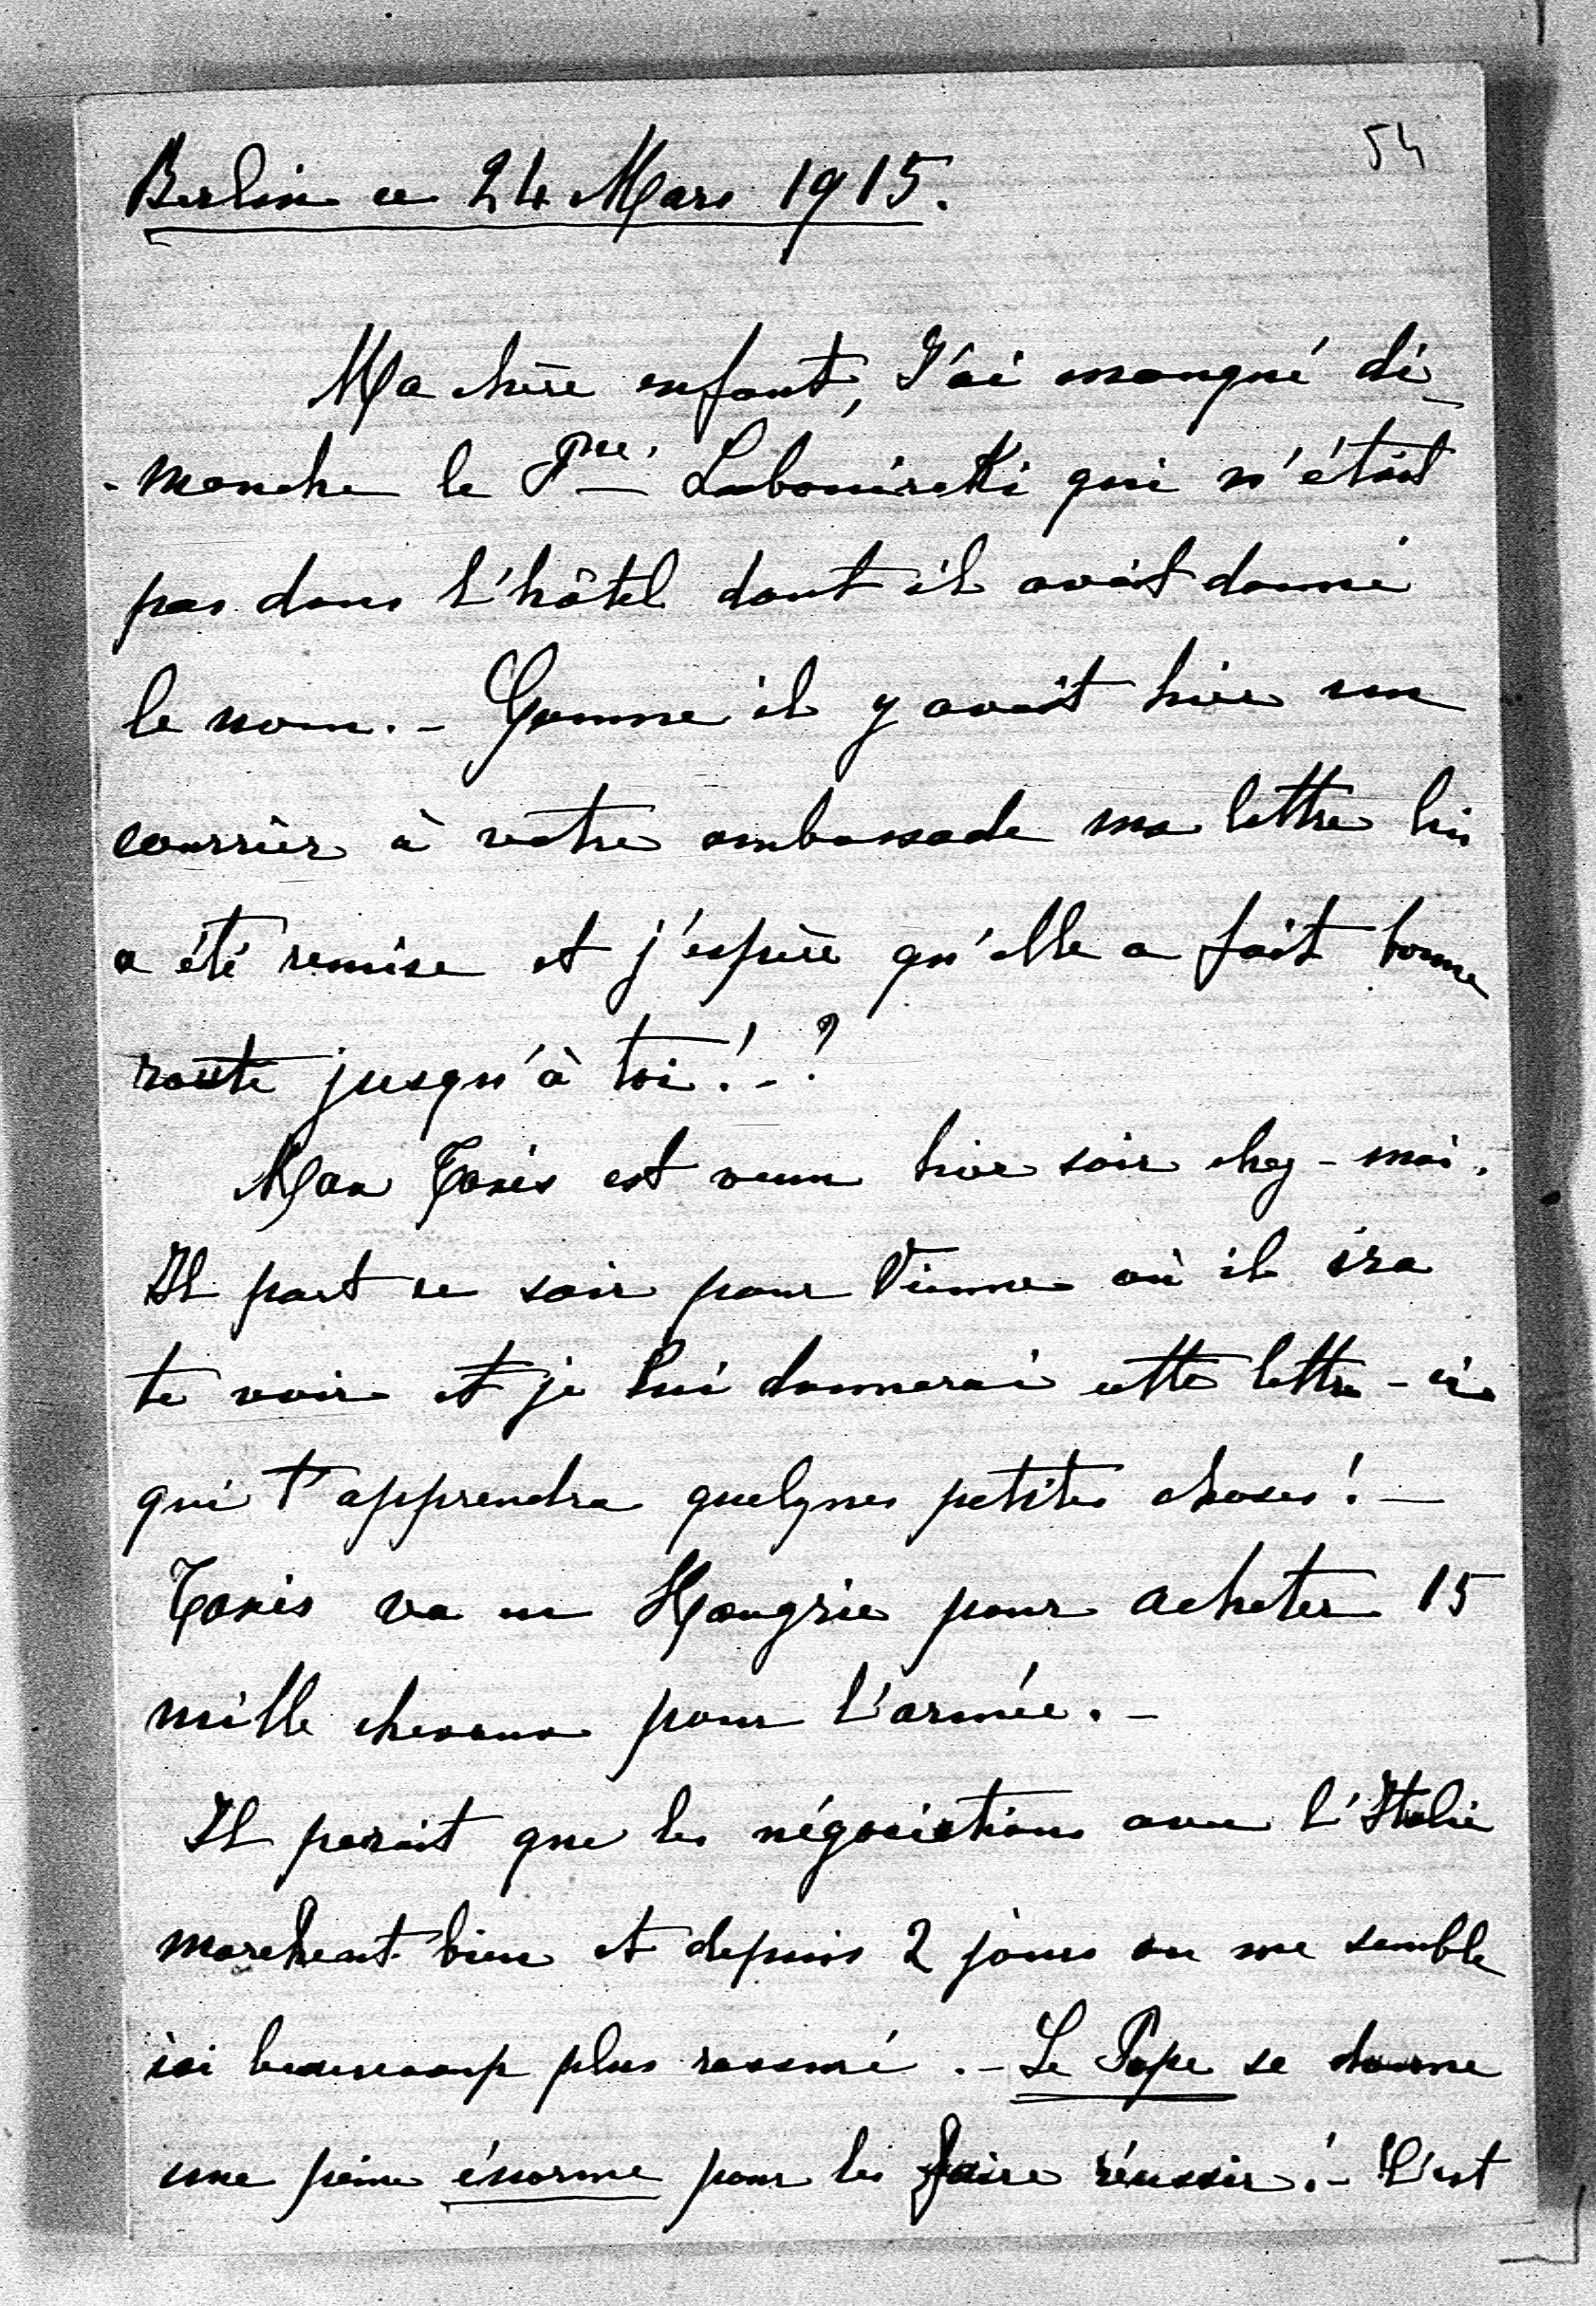 54
Berlin ce 24 Mars 1915.
Ma chère enfant, J'ai manqué di-
-manche le Pce. Lubomirski qui n'était
pas dans l'hôtel dont il avait donné
le nom. - Comme il y avait hier un
courrier à votre ambassade ma lettre lui
a été remise et j'espère qu'elle a fait bonne
route jusqu'à toi! - ?
Max Taxis est venu hier soir chez-moi.
Il part ce soir pour Vienne où il ira
te voir et je lui donnerai cette lettre-ci
qui t'apprendra quelques petites choses! -
Taxis va en Hongrie pour acheter 15
mille chevaux pour l'armée. -
Il parait que les négociations avec l'Italie
marchent bien et depuis 2 jours on me semble
ici beaucoup plus rassuré. - Le Pape se donne
une peine énorme pour les faire réussir! - C'est